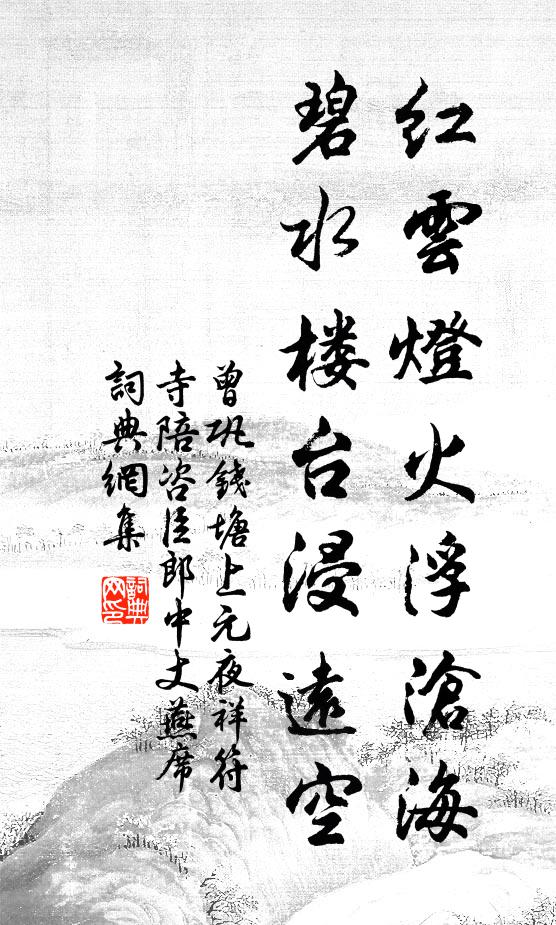 红雲燈火浮滄海
碧水楼台浸遠空
曾巩錢塘上元夜祥符
寺陪咨臣郎中丈燕席
詞典網集
詞典
网印